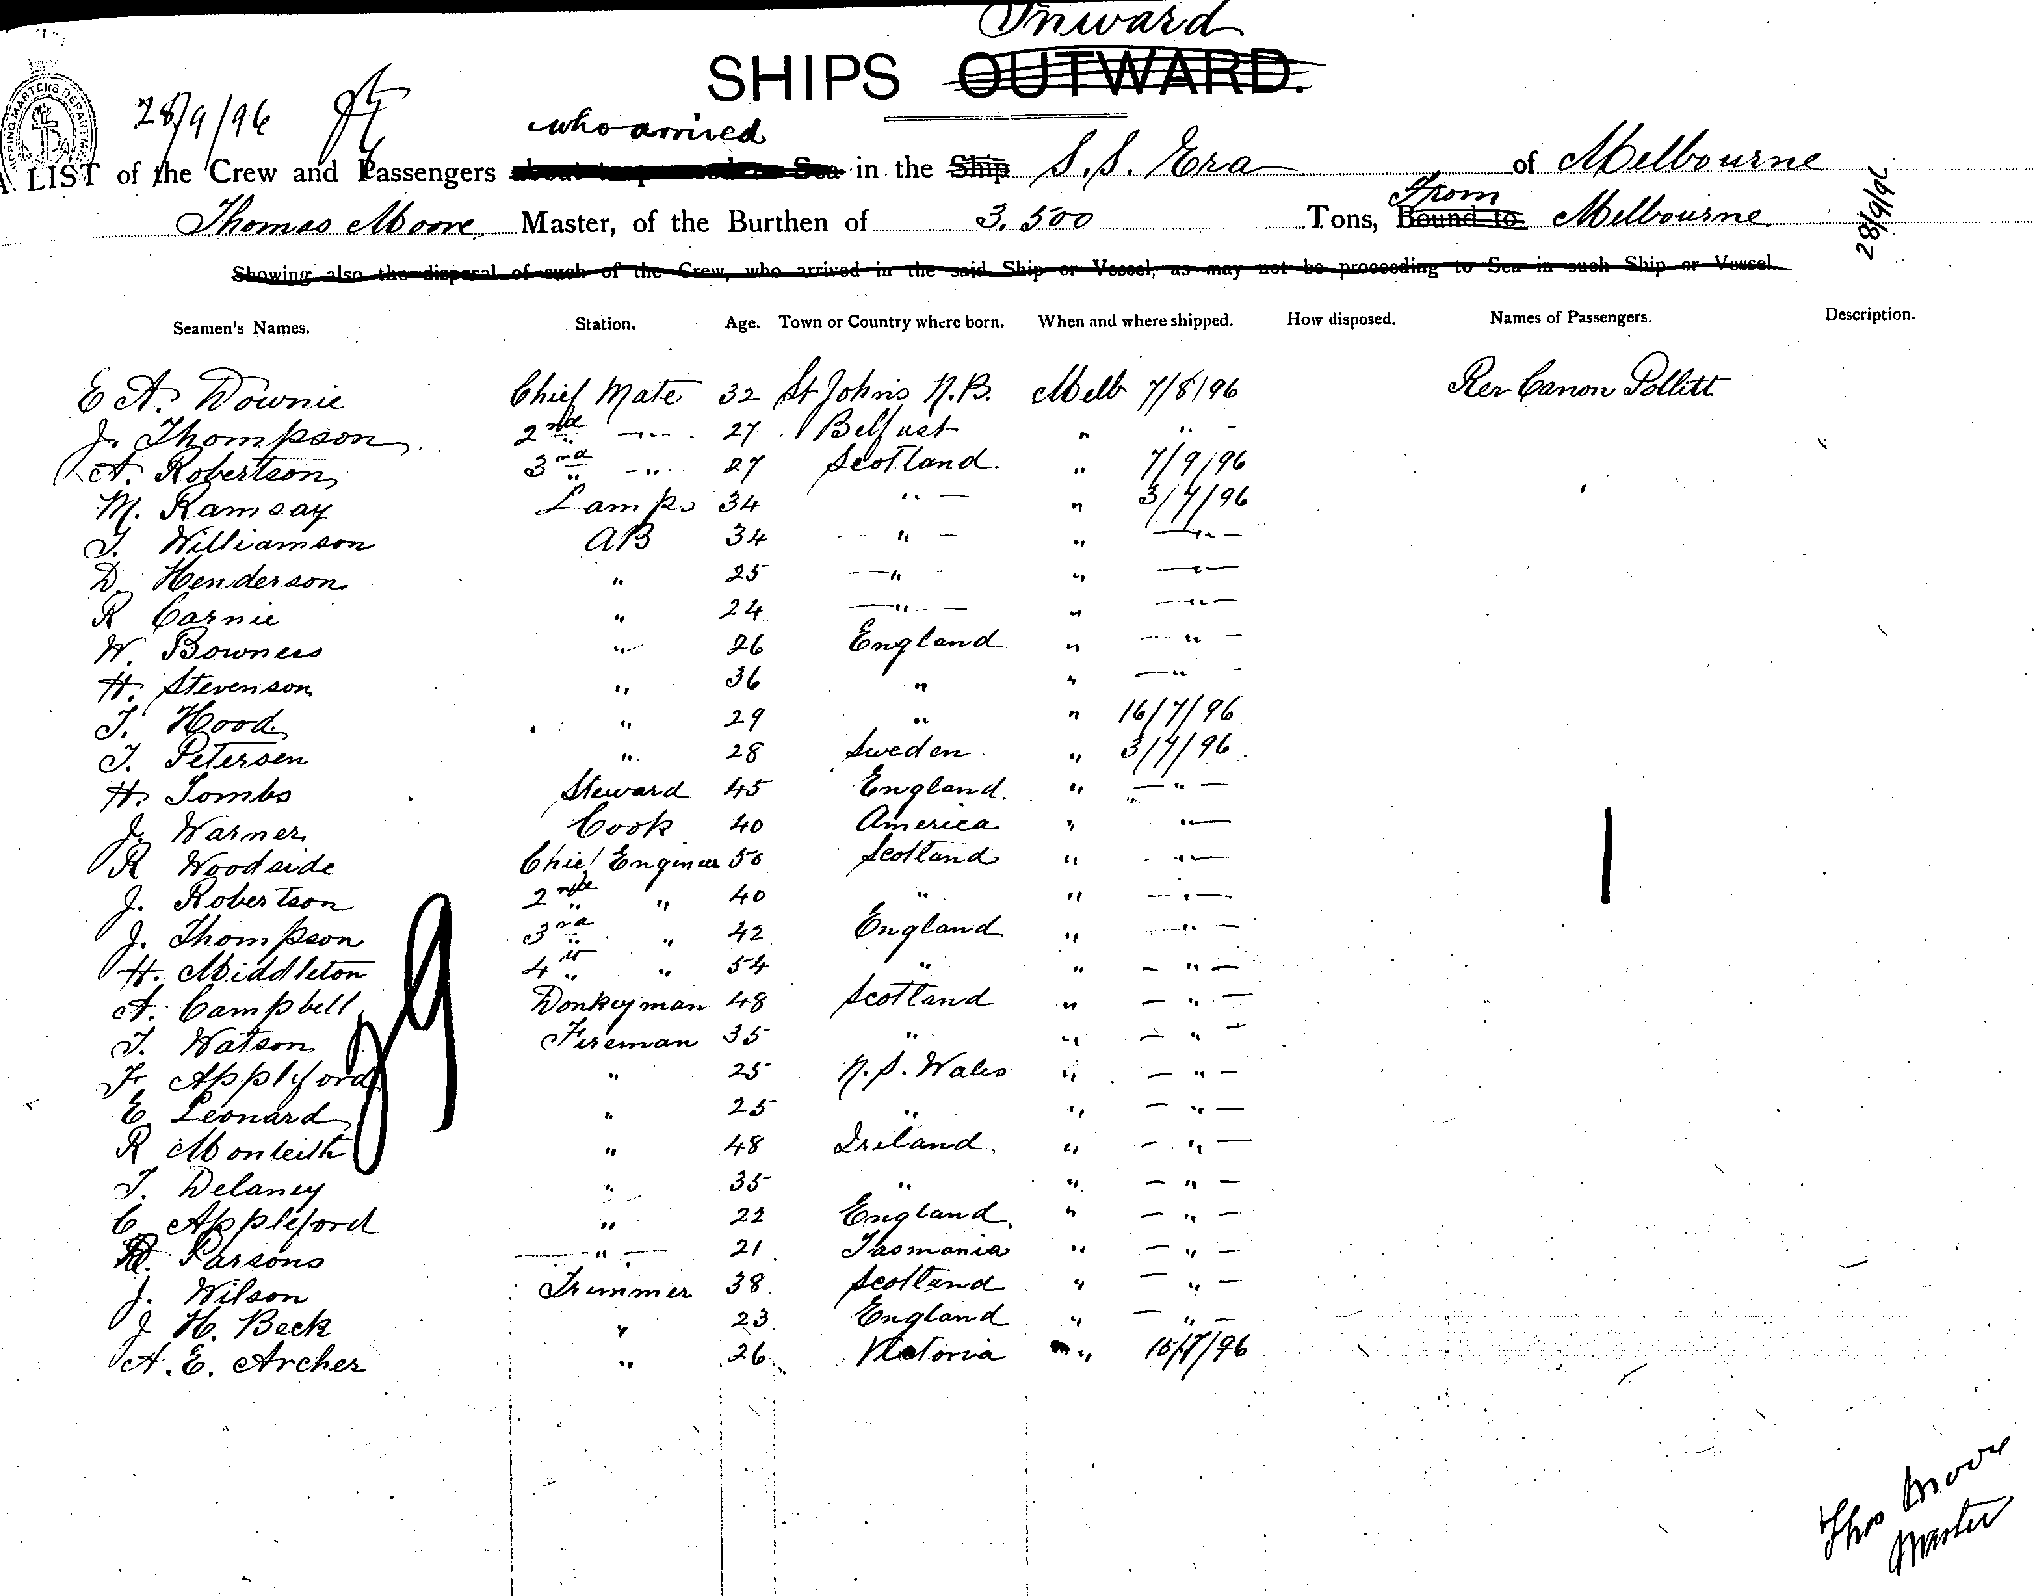 Inward
SHIPS OUTWARD.
28/9/96
who arrived
A LIST of the Crew and Passengers about to proceed to Sea in the Ship S.S. Era of Melbourne
From
Thomas Moore Master, of the Burthen of 3.500 Tons, Bound to Melbourne
28/9/96
Showing also the disposal of such of the Crew, who arrived in the said Ship or Vessel, as may not be proceeding to Sea in such Ship or Vessel.
Seamen's Names. Station. Age. Town or Country where born. When and where shipped. How disposed. Names of Passengers. Description.
E A. Downie Chief Mate 32 St Johns N.B. Melb 7/8/96 Rev Canon Pollitt
J. Thompson 2nd " 27 Belfast " "
A. Robertson 3rd " 27 Scotland " 7/9/96
M. Ramsay Lamps 34 " " 3/7/96
T. Williamson AB 34 " " "
D. Henderson " 25 " " "
R Carnie " 24 " " "
W. Bowness " 26 England " "
H. Stevenson " 36 " " "
T. Hood " 29 " " 16/7/96
T. Petersen " 28 Sweden " 3/7/96
H. Tombs Steward 45 England " "
J. Warner Cook 40 America " "
R Woodside Chief Engineer 50 Scotland " "
J. Robertson 2nd " 40 " " "
J. Thompson 3rd " 42 England " "
H. Middleton 4th " 54 " " "
A. Campbell Donkeyman 48 Scotland " "
T. Watson Fireman 35 " " "
F. Appleford " 25 N.S. Wales " "
E Leonard " 25 " " "
R Monteith " 48 Ireland " "
T. Delaney " 35 " " "
C Appleford " 22 England " "
Parsons " 21 Tasmania " "
J. Wilson Trimmer 38 Scotland " "
J H. Beck " 23 England " "
A. E. Archer " 26 Victoria " 15/7/96
Thos Moore
Master